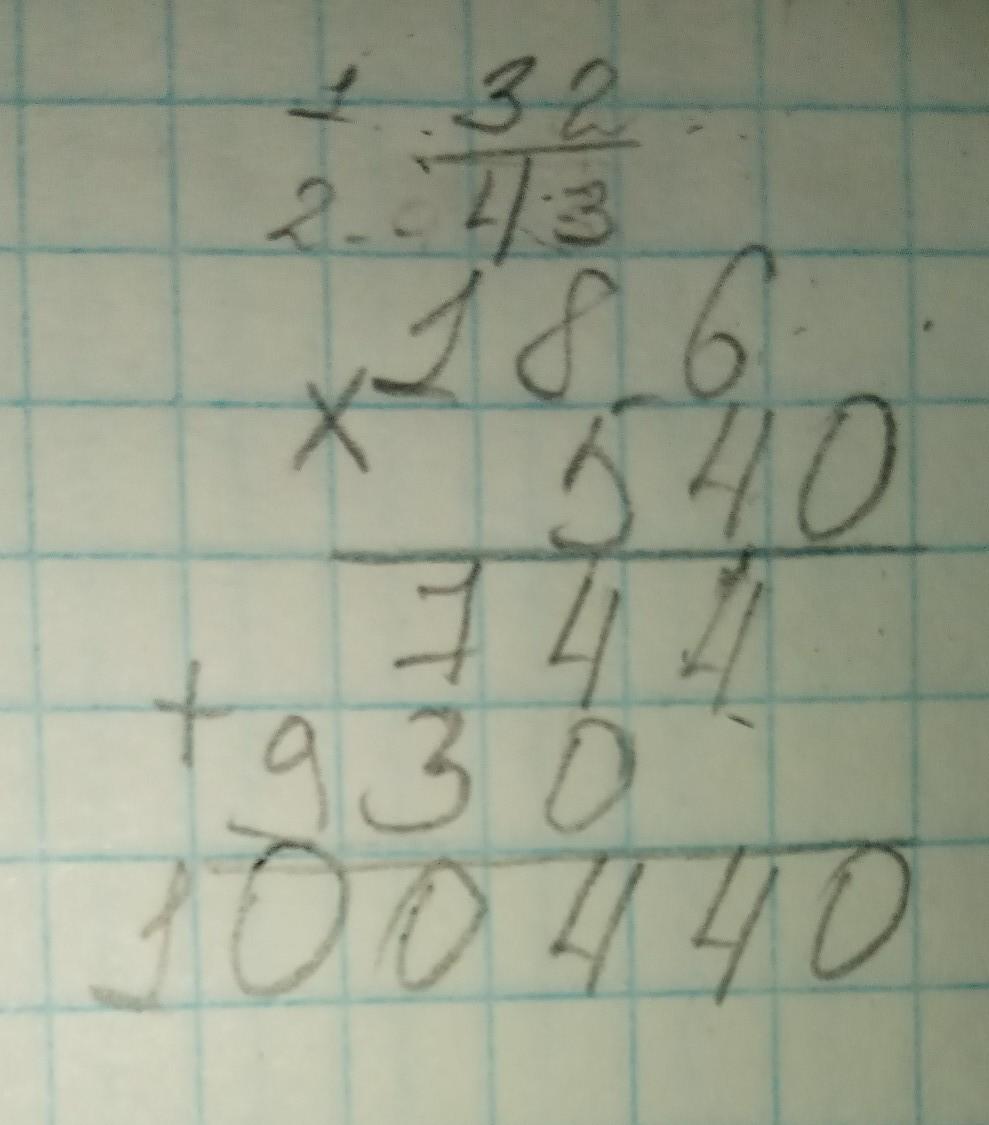 1 32
2 43
186
× 540
744
+ 930
100440